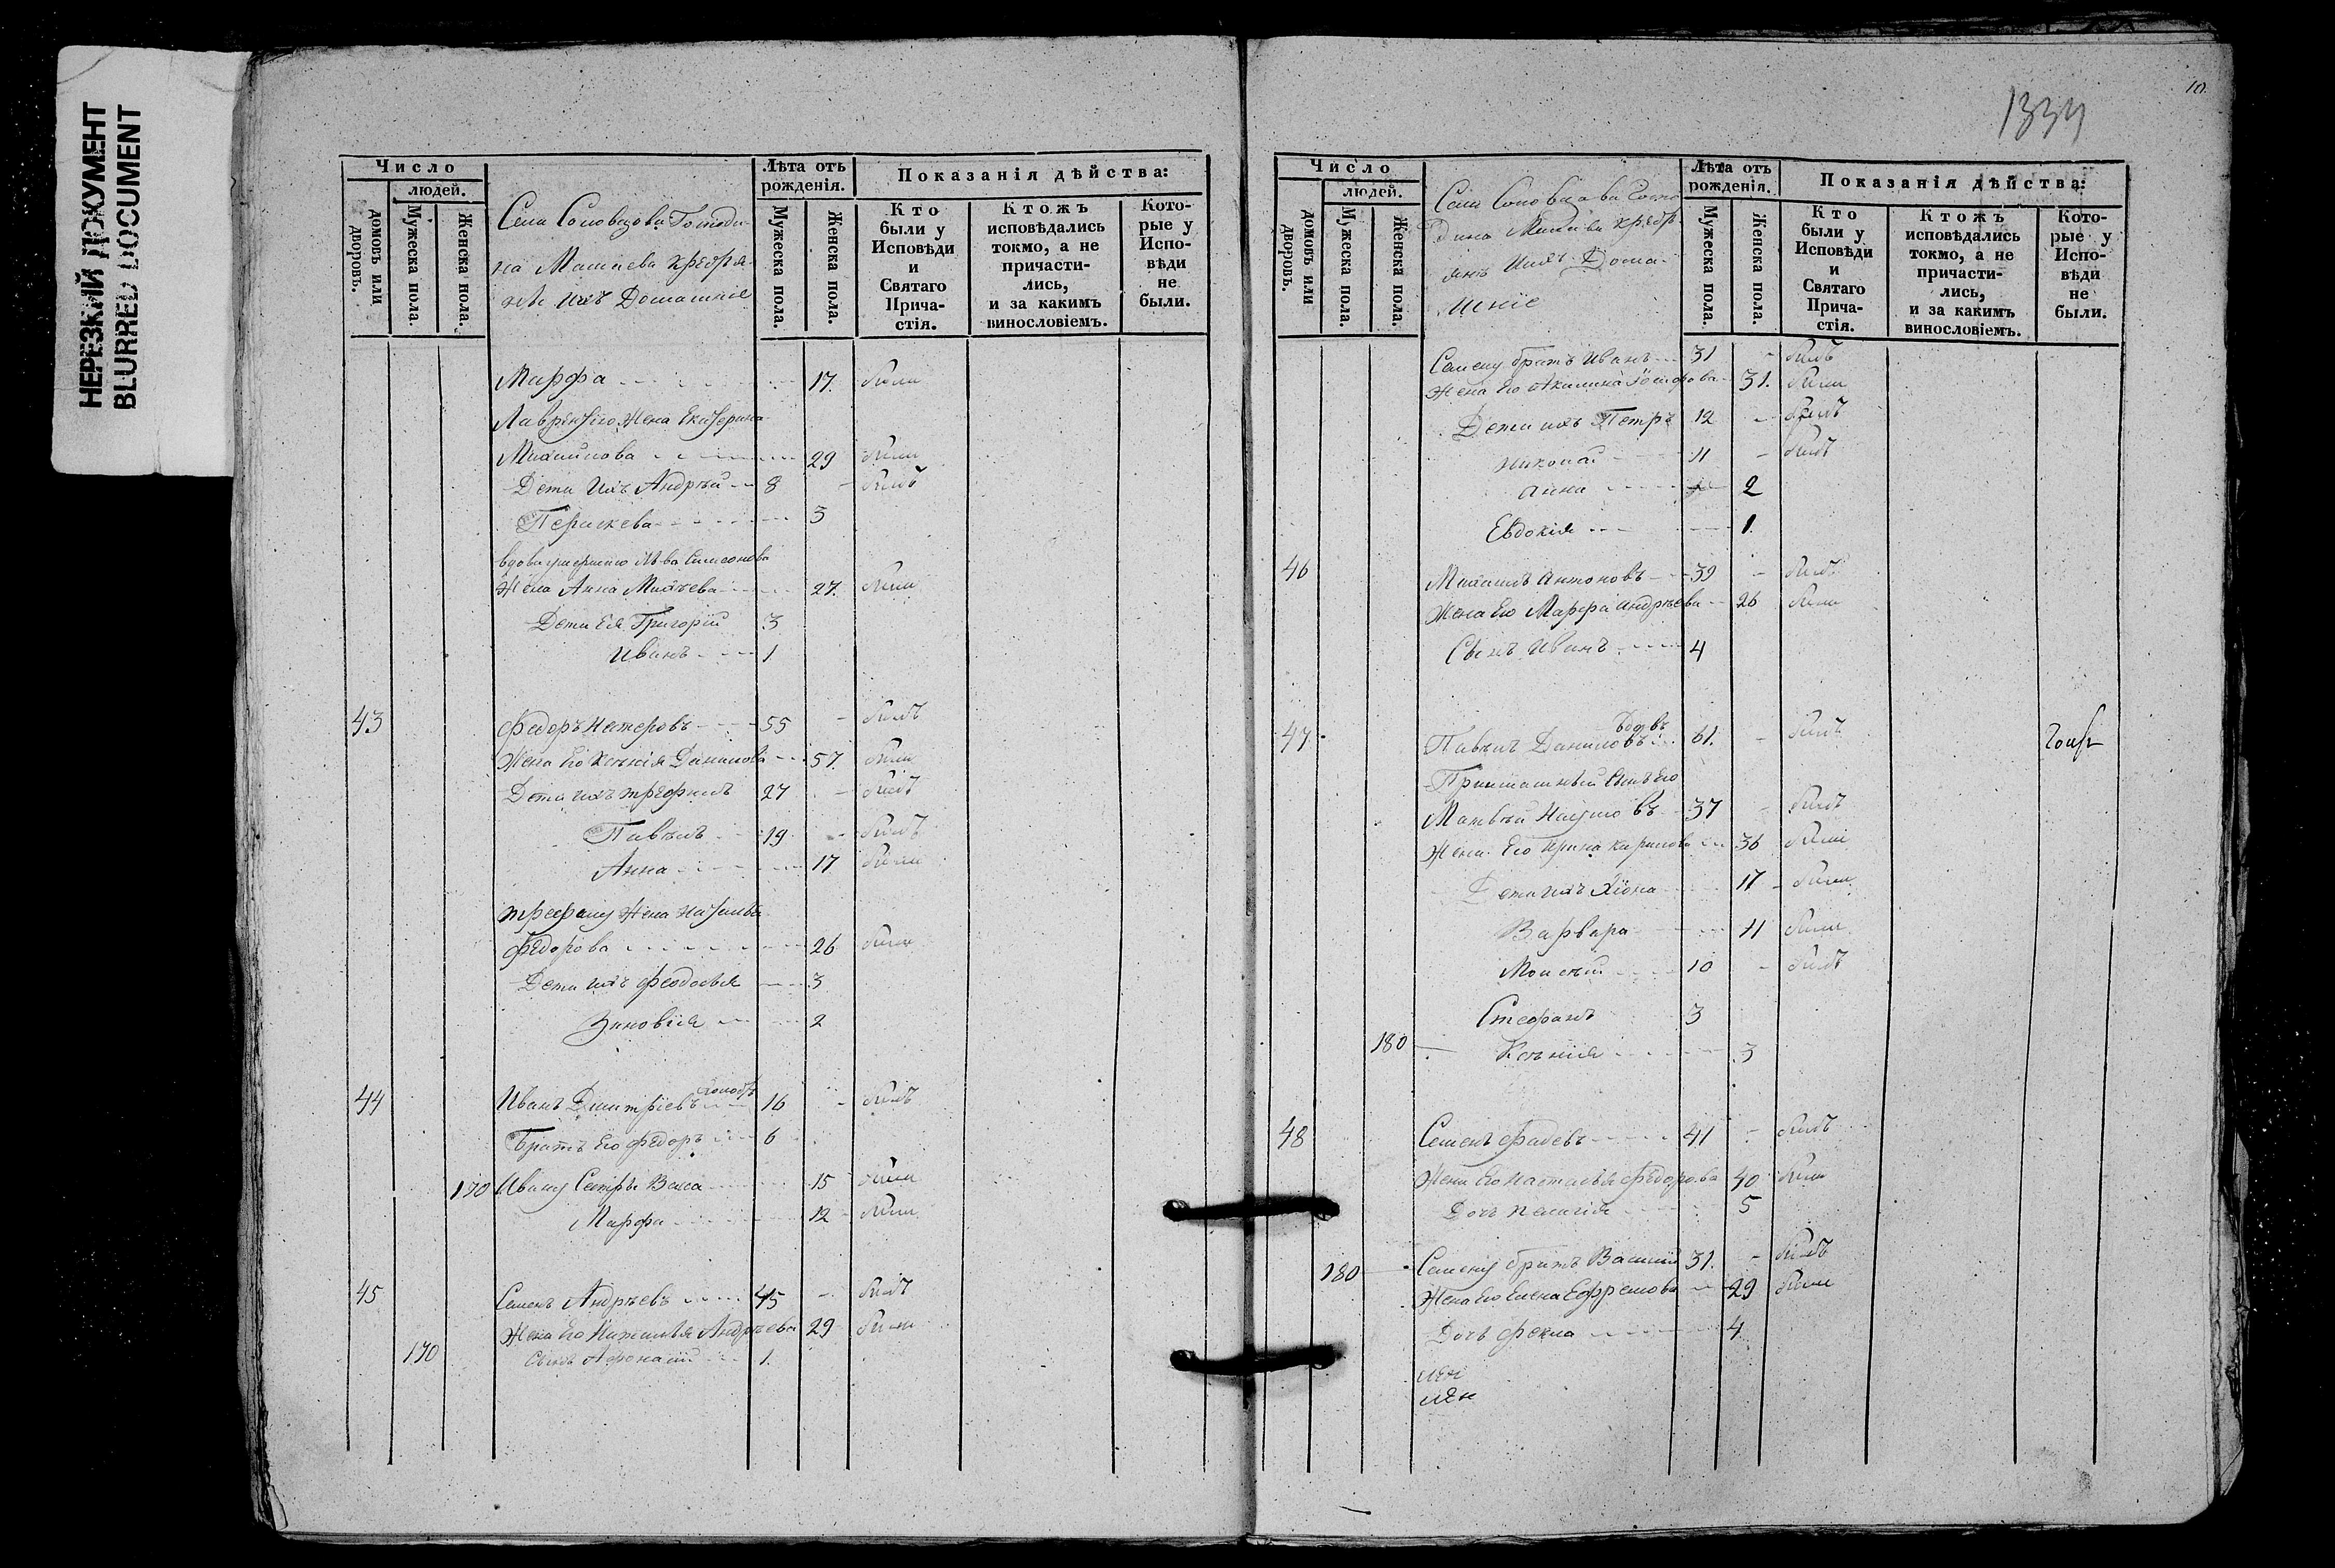 НЕРЕЗКИЙ ДОКУМЕНТ
BLURRED DOCUMENT
Число
людей.
домовъ или дворовъ.
Мужеска пола.
Женска пола.
Села Соловцова Господи
на Машаева Крестья
не Ихъ Домашнiе
Лѣта отъ рожденiя.
Мужеска пола.
Женска пола.
Показанiя дѣйства:
Кто были у Исповѣди и Святаго Прича-стiя.
Ктожъ исповѣдались токмо, а не причасти-лись, и за какимъ винословiемъ.
Кото-рые у Испо-вѣди не были.
Марфа 17. были
Лаврентiя Жена Екатерина
Михайлова 29 были
Дети Ихъ Андрѣй 8 - былъ
Параскева 3
вдова умершаго Льва Симеонова
Жена Анна Михѣева 27. были
Дети Ея Григорiй 3
Иванъ 1
43 Федоръ Нестеровъ 55 - былъ
Жена Его Ксѣнiя Данилова 57. были
Дети ихъ Трефилъ 27 - былъ
Павѣлъ 19 - былъ
Анна 17 были
Трефилу Жена Наталья
Федорова 26 были
Дети ихъ Феодосья 3
Зиновiя 2
холостъ
44 Иванъ Дмитрiевъ 16 - былъ
Братъ Его Федоръ 6
170 Ивану Сестры Васса 15 были
Марфа 12 были
45 Семенъ Андрѣевъ 45 - былъ
Жена Его Наталья Андрѣева 29 были
170 Сынъ Афонасiй 1.
10.
1334
Число
людей.
домовъ или дворовъ.
Мужеска пола.
Женска пола.
Села Соловцова Госпо
дина Машаева Кресть
янъ Ихъ Дома-
шнiе
Лѣта отъ рожденiя.
Мужеска пола.
Женска пола.
Показанiя дѣйства:
Кто были у Исповѣди и Святаго Прича-стiя.
Ктожъ исповѣдались токмо, а не причасти-лись, и за какимъ винословiемъ.
Кото-рые у Испо-вѣди не были.
Семену братъ Иванъ 31 - былъ
Жена Его Акилина 31. были
Дети ихъ Петръ 12 - былъ
Николай 11 - былъ
Анна 2
Евдокiя 1.
46 Михаилъ Антоновъ 39 - былъ
Жена Его Марфа Андрѣева 26 были
Сынъ Иванъ 4
вдовъ
47 Павѣлъ Даниловъ 61. - былъ
Прiемышный Сынъ Его
Матвѣй Наумовъ 37 - былъ
Жена Его Ирина Карпова 36 были
Дети ихъ Хiона 17 были
Варвара 11 были
Моисѣй 10 - былъ
Стефанъ 3
180 Ксѣнiя 3
48 Семенъ Фадевъ 41 - былъ
Жена Его Настасья Федорова 40 были
Дочь Пелагiя 5
180 Семену братъ Василiй 31. - былъ
Жена Его Елена Ефремова 29 были
Дочь Фекла 4